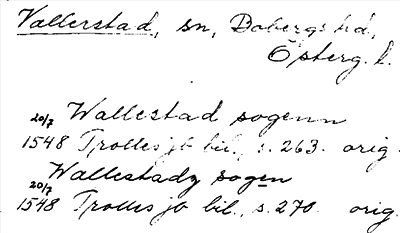 Vallerstad, sn, Bobergs hd,
Östergl.
20/7 Wallestad sogenn
1548 Trolles jb bil., s. 263. orig.
Wallestadz sogen
20/7
1548 Trolles jb bil., s. 270. orig.